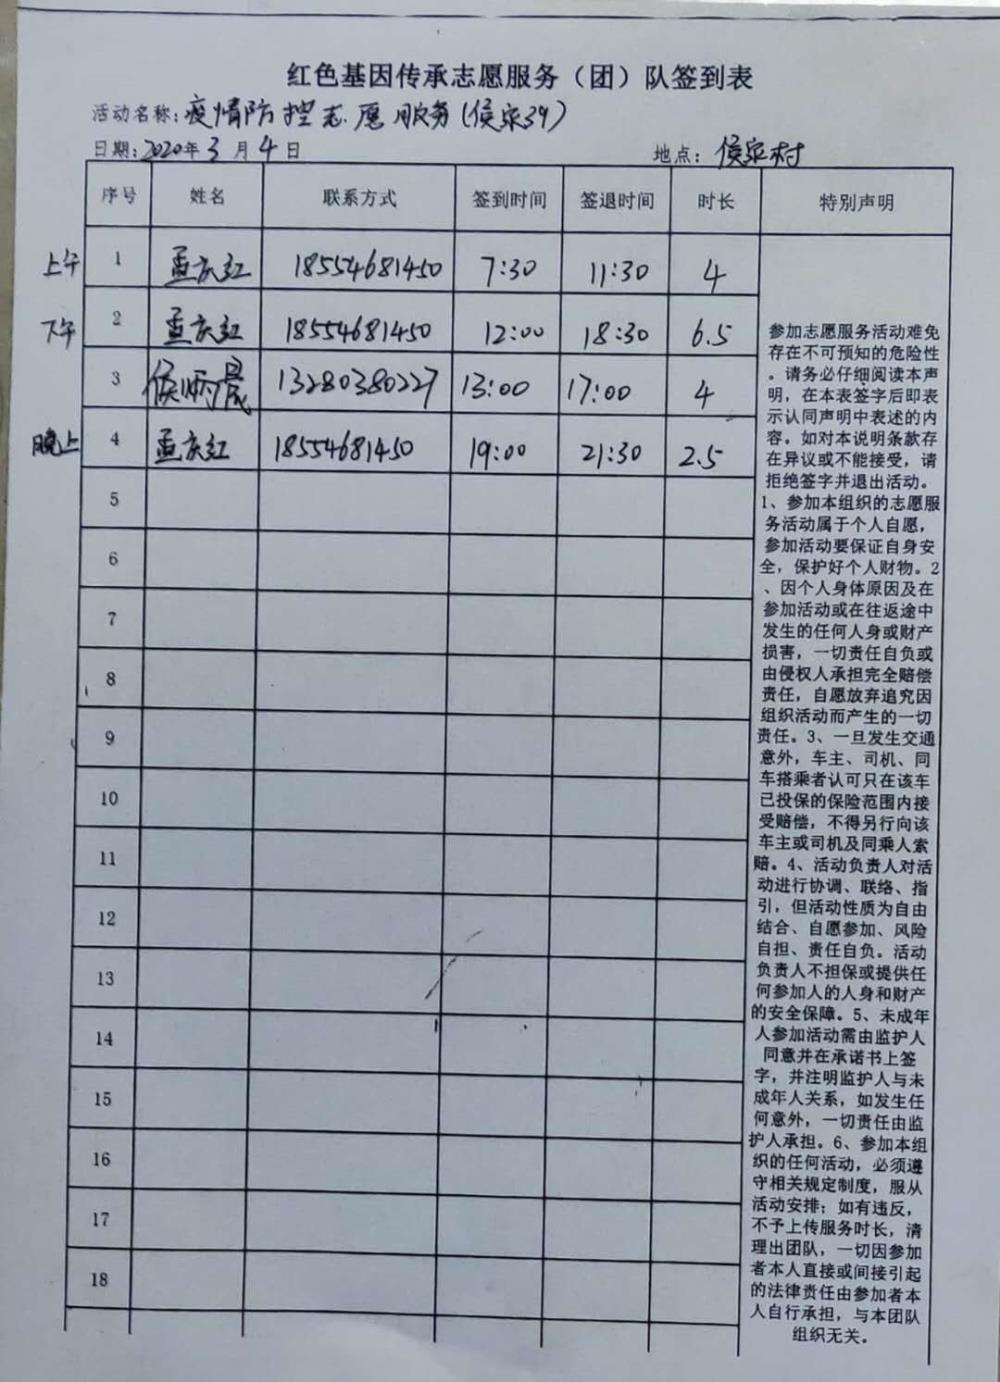 红色基因传承志愿服务（团）队签到表
活动名称:疫情防控志愿服务(侯家39)
日期:2020年3月4日 地点:侯家村
序号 姓名 联系方式 签到时间 签退时间 时长 特别声明
上午 1 孟庆红 18554681450 7:30 11:30 4
下午 2 孟庆红 18554681450 12:00 18:30 6.5
3 侯炳晟 13280380227 13:00 17:00 4
晚上 4 孟庆红 18554681450 19:00 21:30 2.5
5
6
7
8
9
10
11
12
13
14
15
16
17
18
参加志愿服务活动难免
存在不可预知的危险性
。请务必仔细阅读本声
明，在本表签字后即表
示认同声明中表述的内
容。如对本说明条款存
在异议或不能接受，请
拒绝签字并退出活动。
1、参加本组织的志愿服
务活动属于个人自愿，
参加活动要保证自身安
全，保护好个人财物。2
、因个人身体原因及在
参加活动或在往返途中
发生的任何人身或财产
损害，一切责任自负或
由侵权人承担完全赔偿
责任，自愿放弃追究因
组织活动而产生的一切
责任。3、一旦发生交通
意外，车主、司机、同
车搭乘者认可只在该车
已投保的保险范围内接
受赔偿，不得另行向该
车主或司机及同乘人索
赔。4、活动负责人对活
动进行协调、联络、指
引，但活动性质为自由
结合、自愿参加、风险
自担、责任自负。活动
负责人不担保或提供任
何参加人的人身和财产
的安全保障。5、未成年
人参加活动需由监护人
同意并在承诺书上签
字，并注明监护人与未
成年人关系，如发生任
何意外，一切责任由监
护人承担。6、参加本组
织的任何活动，必须遵
守相关规定制度，服从
活动安排；如有违反，
不予上传服务时长，清
理出团队，一切因参加
者本人直接或间接引起
的法律责任由参加者本
人自行承担，与本团队
组织无关。